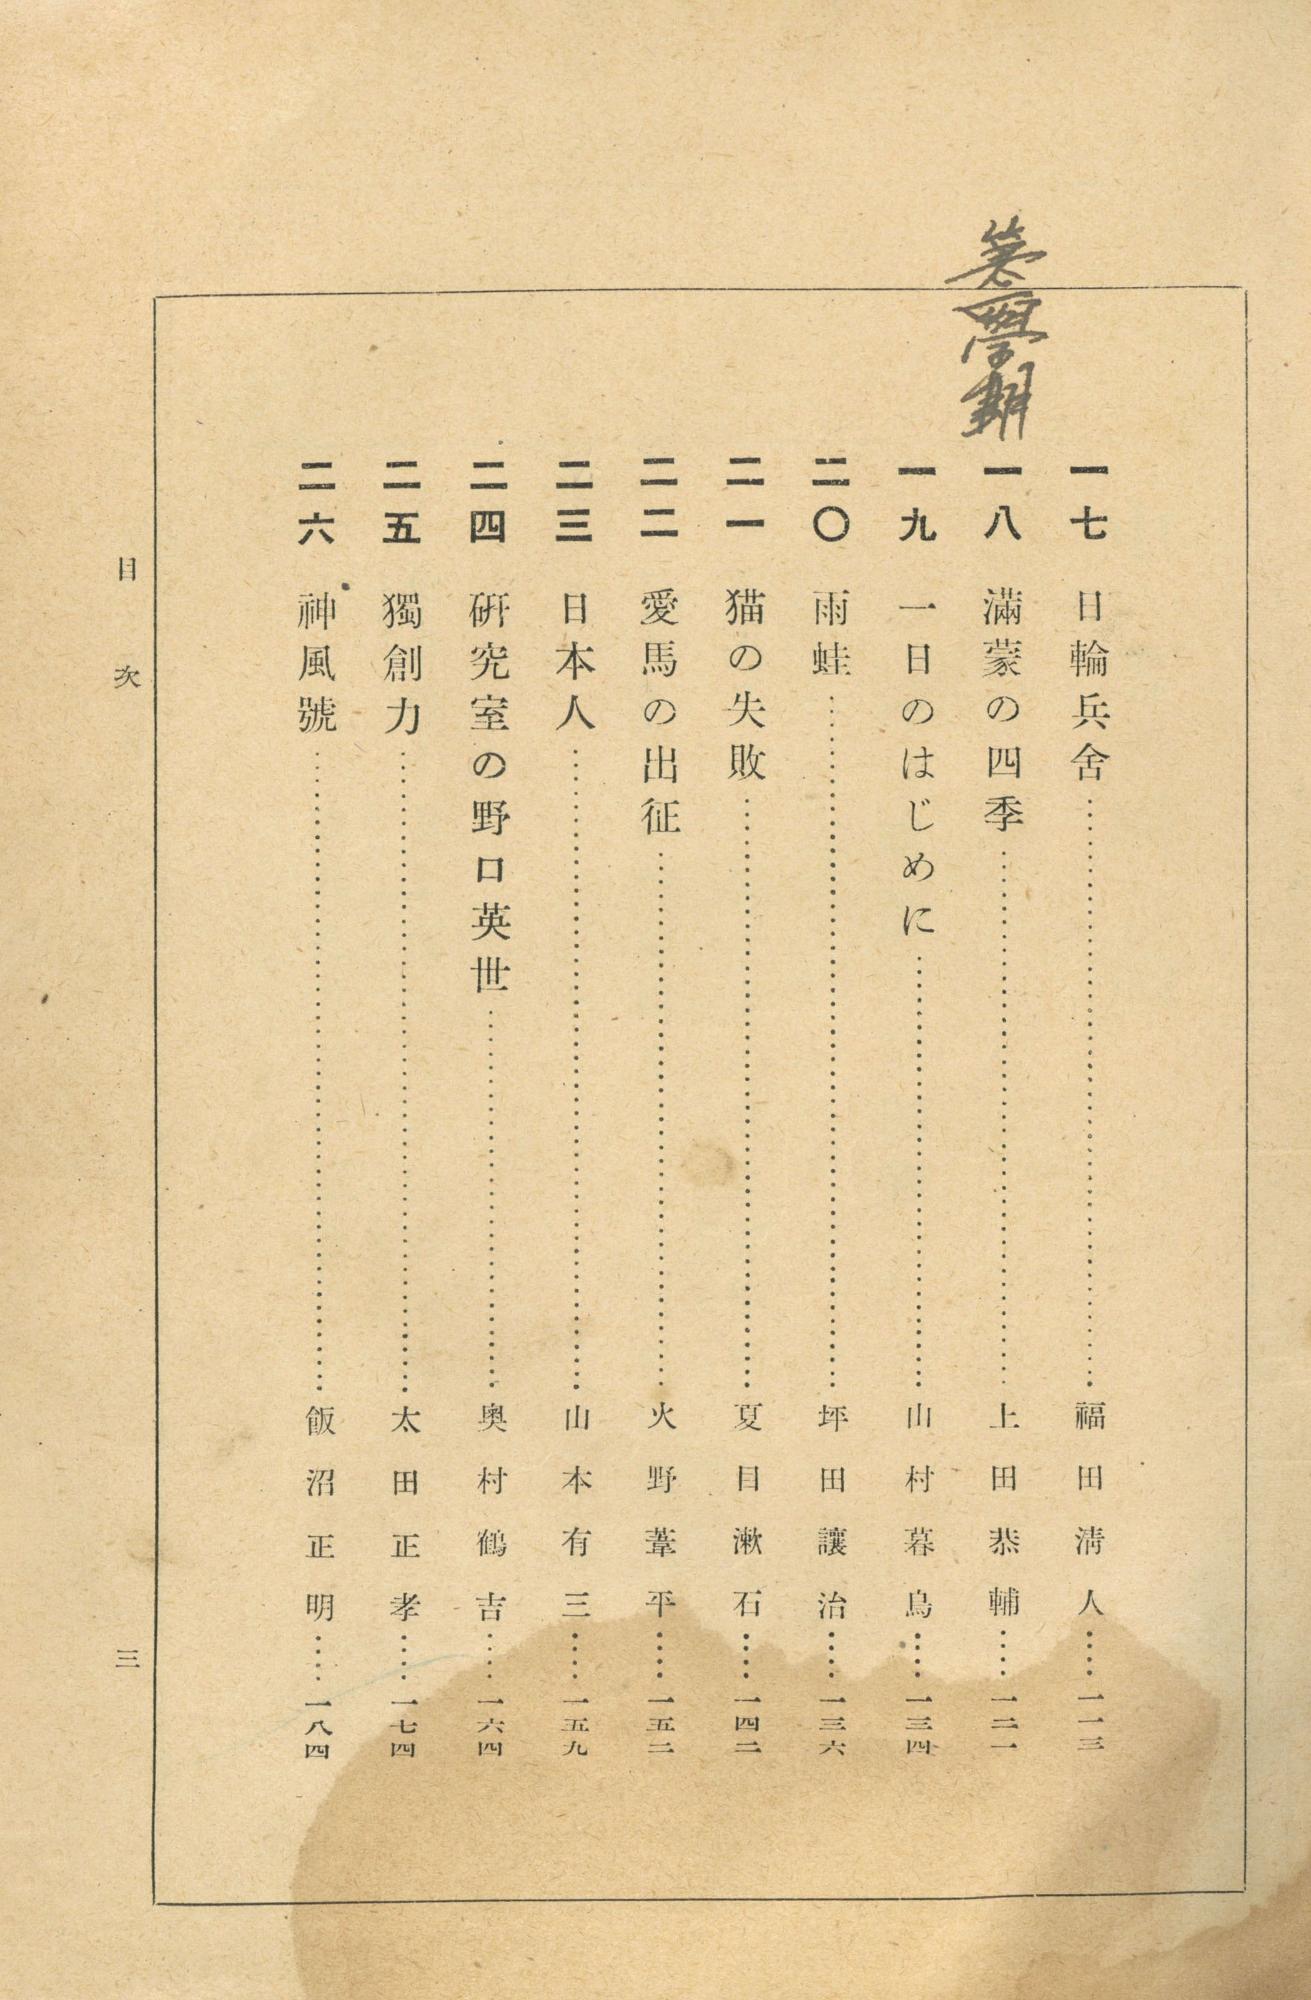 第二學期
一七 日輪兵舍……福田淸人……一一三
一八 滿蒙の四季……上田恭輔……一二一
一九 一日のはじめに……山村暮鳥……一三四
二〇 雨蛙……坪田讓治……一三六
二一 猫の失敗……夏目漱石……一四二
二二 愛馬の出征……火野葦平……一五二
二三 日本人……山本有三……一五九
二四 硏究室の野口英世……奧村鶴吉……一六四
二五 獨創力……太田正孝……一七四
二六 神風號……飯沼正明……一八四
目次
三